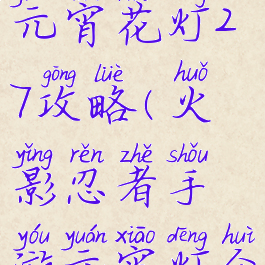 元宵花灯2
gōng lüè huǒ
7攻略(火
yǐng rěn zhě shǒu
影忍者手
yóu yuán xiāo dēng huì
游元宵灯会